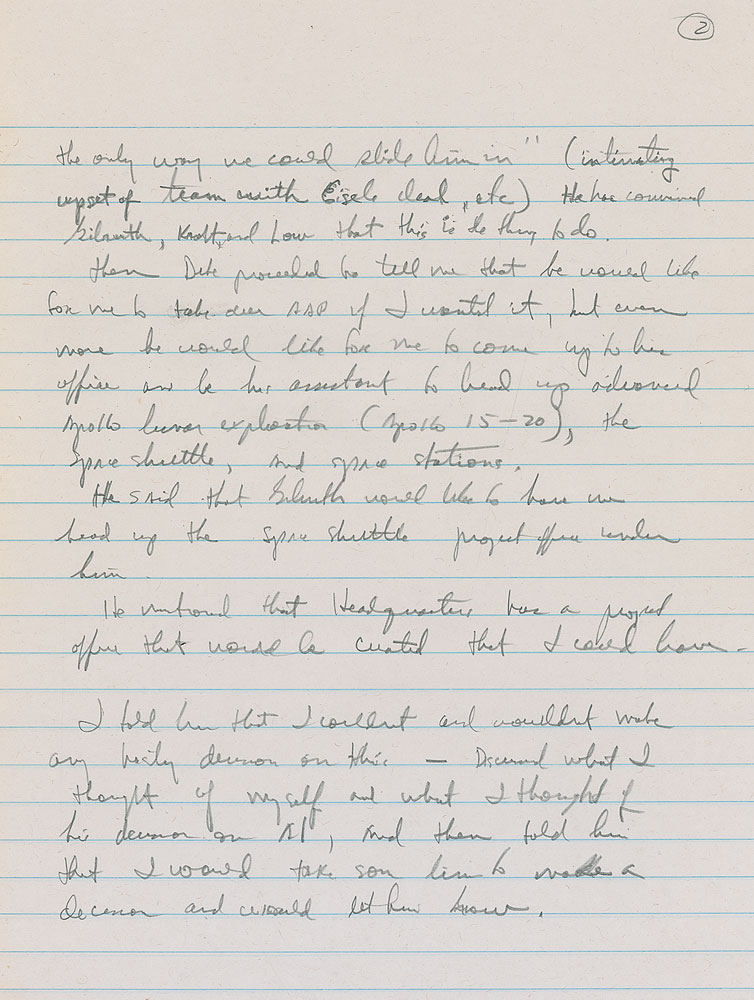 2
the only way we could slide him in" (intimating
upset of team with Eisele dead, etc) He has convinced
Gilruth, Kraft, and Low that this is the thing to do.
Then Deke proceeded to tell me that he would like
for me to take over AAP if I wanted it, but even
more he would like for me to come up to his
office and be his assistant to head up advanced
Apollo lunar exploration (Apollo 15-20), the
Space shuttle, and space stations.
He said that Gilruth would like to have me
head up the space shuttle project office under
him.
He mentioned that Headquarters has a project
office that would be created that I could have-
I told him that I couldnt and wouldnt make
any hasty decision on this — Discussed what I
thought of myself and what I thought of
his decision on Al, and then told him
that I would take some time to make a
decision and would let him know.